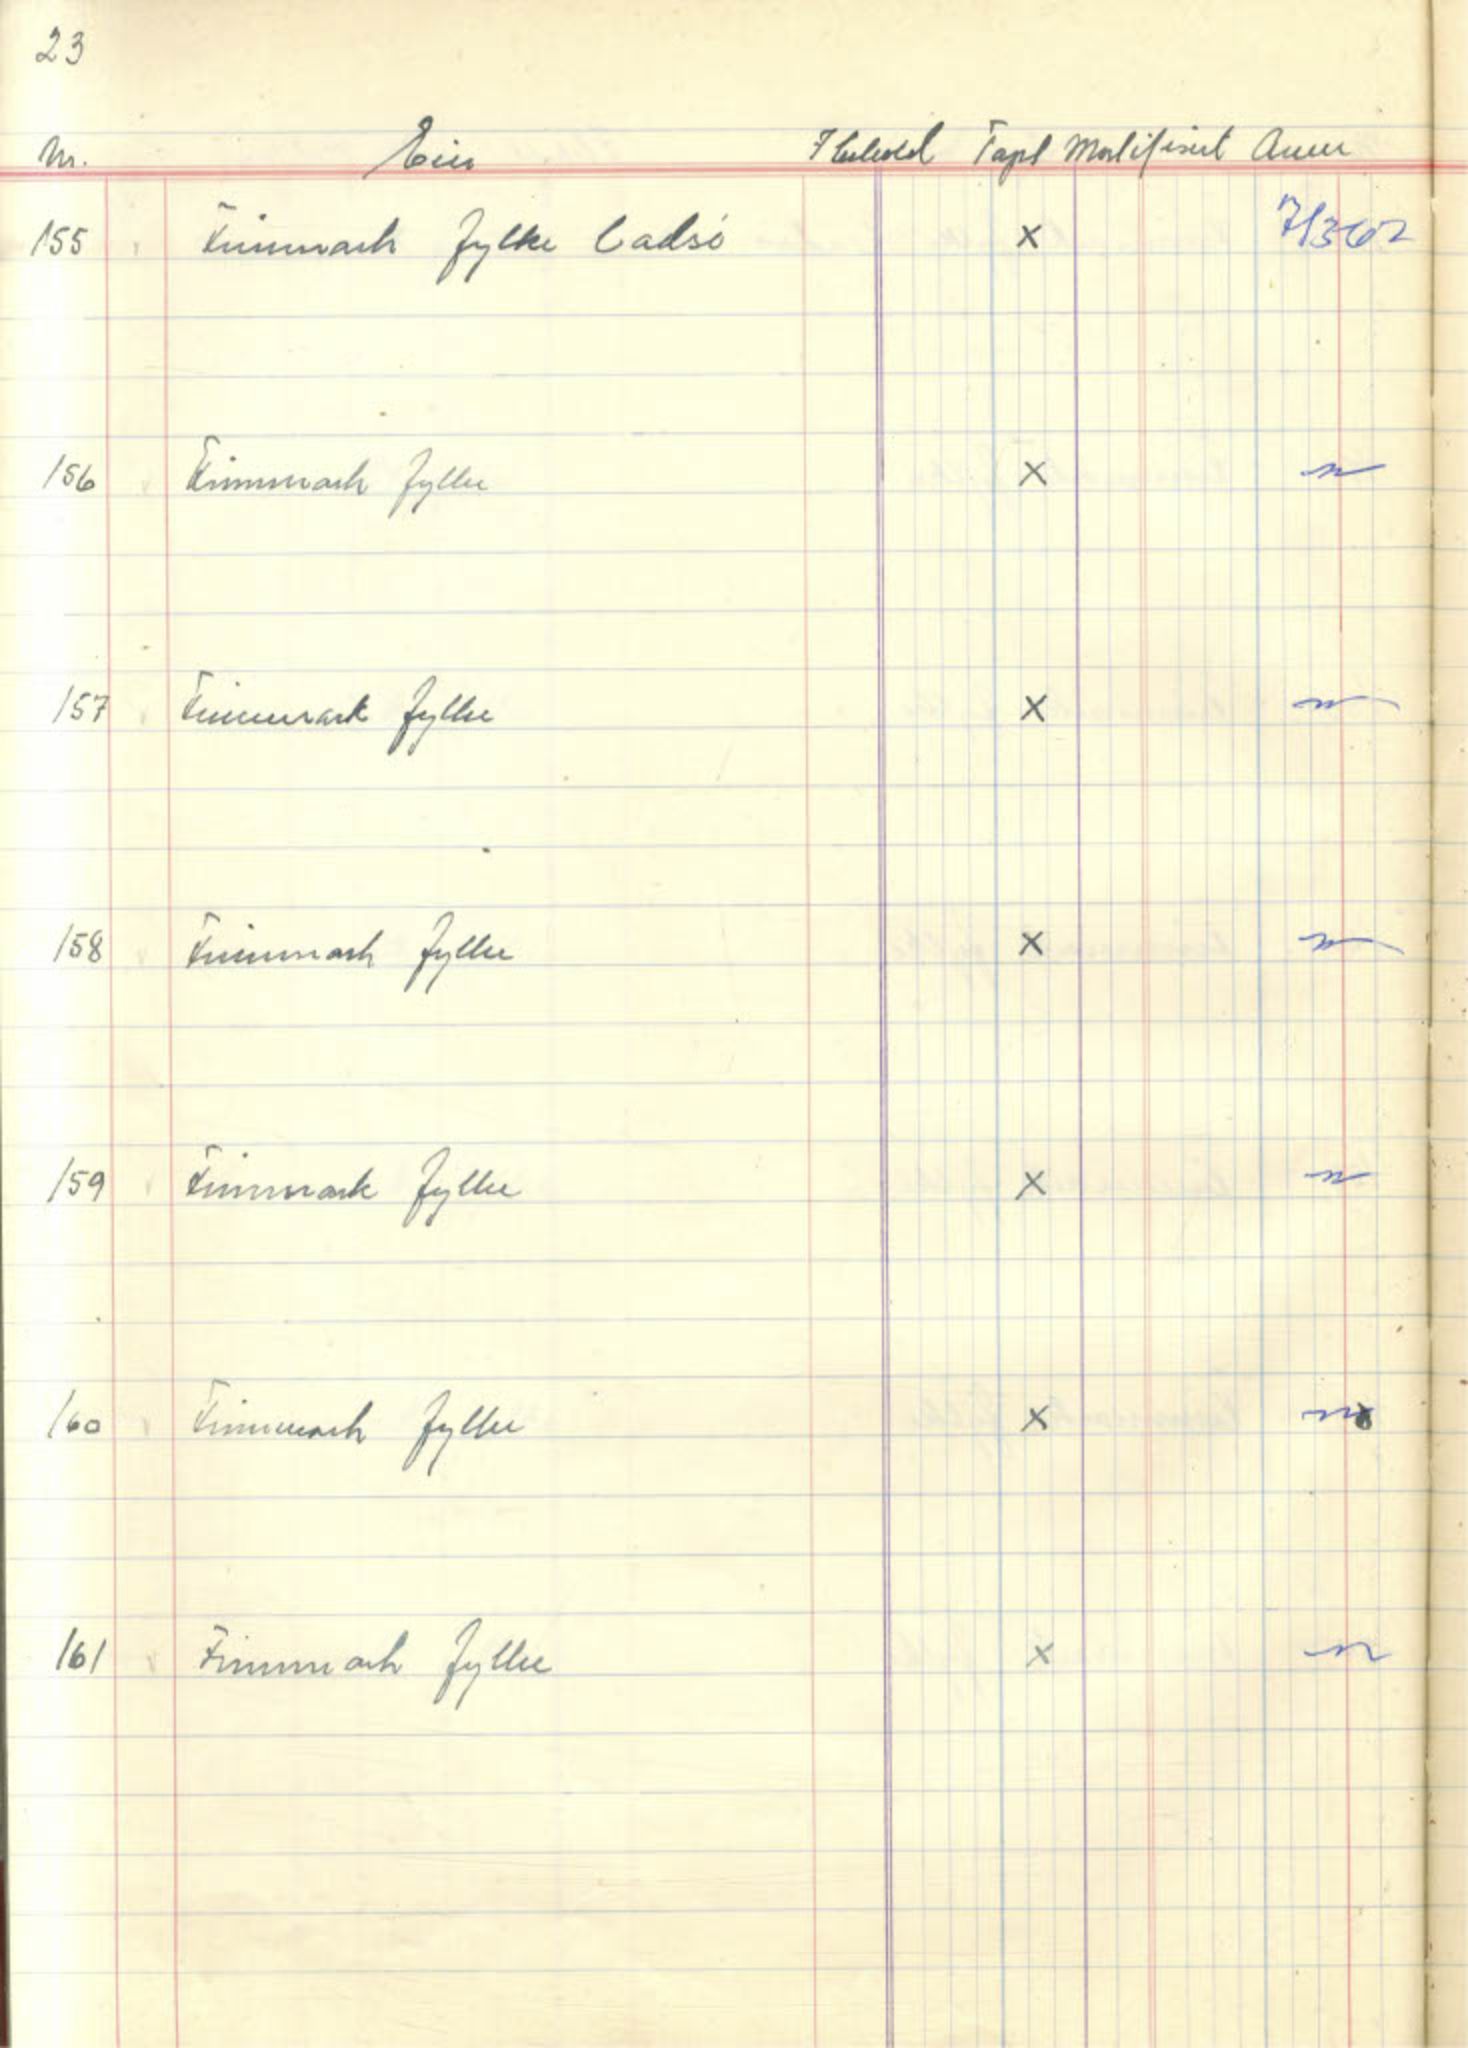 23
Nr. Eier I behold Tapt Mortifisert Anm
155 Finnmark fylke Vadsø X 7/3 62
156 Finnmark fylke X n
157 Finnmark fylke X n
158 Finnmark fylke X n
159 Finnmark fylke X n
160 Finnmark fylke X n
161 Finnmark fylke X n